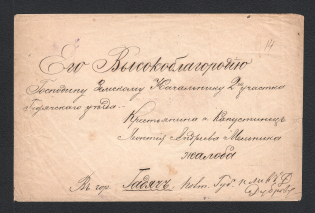 14
Его Высокоблагородію
Господину Земскому Начальнику 2го участка
Гадячского уѣзда
Крестьянина с. Капустинецъ
Андреева Мельника
жалоба
Въ гор. Гадячъ. Полт. Губ.